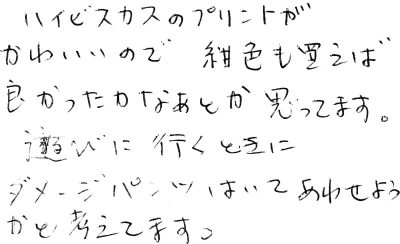 ハイビスカスのプリントが
かわいいので 紺色も買えば
良かったかなあとか思ってます。
遊びに行くときに
ダメージパンツはいてあわせよう
かと考えてます。